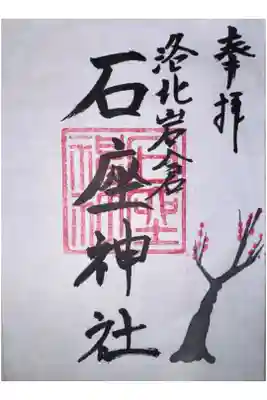 奉拝
洛北岩倉
石座神社